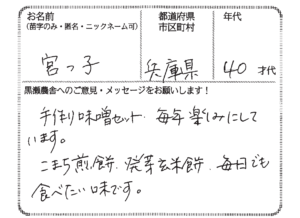 お名前
(苗字のみ・匿名・ニックネーム可)
都道府県
市区町村
年代
宮っ子
兵庫県
40才代
黒瀬農舎へのご意見・メッセージをお願いします！
手作り味噌セット 毎年楽しみにして
います。
こまち煎餅、発芽玄米餅、毎日でも
食べたい味です。